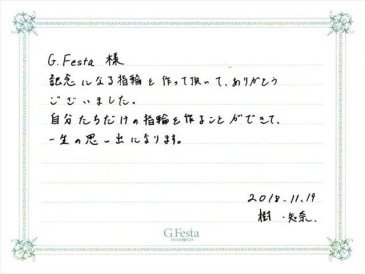 G.Festa 様
記念になる指輪を作って頂いて、ありがとう
ございました。
自分たちだけの指輪を作ることができて、
一生の思い出になります。
2018.11.19
樹・矢奈.
G.Festa